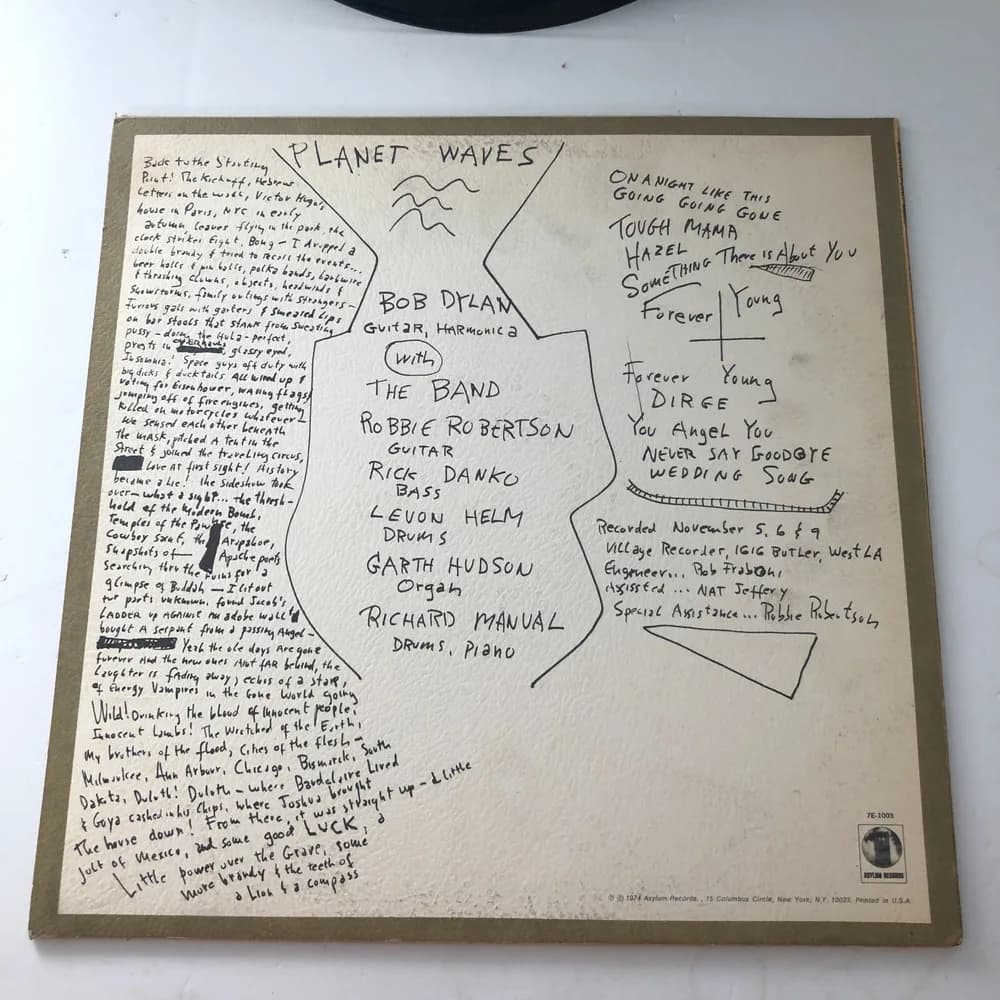 PLANET WAVES
Back to the Starting
Point! The Kickoff, Hebrew
Letters on the wall, Victor Hugo's
house in Paris, NYC in early
autumn, leaves flying in the park, the
clock strikes Eight, Bong - I dropped a
double brandy & tried to recall the events...
beer halls & pin balls, polka bands, barbwire
& thrashing clowns, objects, headwinds &
Snowstorms, family outings with strangers -
Furious gals with garters & smeared Lips
on bar stools that stank from sweating
pussy - doing the Hula - perfect,
priests in overhauls, glassy eyed,
Insomnia! Space guys off duty with
big dicks & ducktails All wired up &
voting for Eisenhower, waving flags,
jumping off of fire engines, getting
Killed on motorcycles whatever -
We sensed each other beneath
the mask, pitched A tent in the
Street & joined the traveling circus,
Love at first sight! History
became a Lie! the sideshow took
over - what a sight... the thresh-
hold of the Modern Bomb,
Temples of the Pawnee, the
Cowboy saint, the Arapahoe,
Snapshots of Apache poets
Searching thru the ruins for a
glimpse of Buddah - I lit out
for parts unknown, found Jacob's
LADDER up AGAINST AN adobe wall &
bought A serpant from a passing Angel -
Yeah the ole days Are gone
forever And the new ones Aint fAR behind, the
Laughter is fading away, echos of a staR,
of Energy Vampires in the Gone World going
Wild! Drinking the blood of innocent people,
Innocent Lambs! The Wretched of the Earth,
My brothers of the flood, Cities of the flesh -
Milwaukee, Ann Arbour, Chicago, Bismarck, South
Dakota, Duluth! Duluth - where Baudelaire Lived
& Goya cashed in his Chips, where Joshua brought
the house down! From there, it was straight up - a little
jolt of Mexico, and some good LUCK, a
Little power over the Grave, some
more brandy & the teeth of
a Lion & a compass
BOB DYLAN
GUITAR, HARMONICA
with
THE BAND
ROBBIE ROBERTSON
GUITAR
RICK DANKO
BASS
LEVON HELM
DRUMS
GARTH HUDSON
Organ
RICHARD MANUAL
DRUMS, PIANO
ON A NIGHT LIKE THIS
GOING GOING GONE
TOUGH MAMA
HAZEL
SOMETHING There is About You
Forever Young
Forever Young
DIRGE
You Angel You
NEVER SAY GOODBYE
WEDDING SONG
Recorded November 5, 6 & 9
Village Recorder, 1616 BUTLER, West LA
Engeneer... Rob Fraboni
Assissted ... NAT Jeffery
Special Assistance... Robbie Robertson
7E-1003
ASYLUM RECORDS
℗ © 1974 Asylum Records, 15 Columbus Circle, New York, N.Y. 10023. Printed in U.S.A.